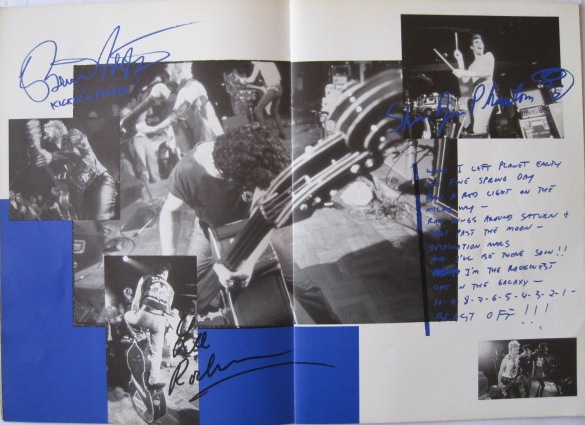 Slim Jim Phantom
WELL I LEFT PLANET EARTH
ONE SPRING DAY
A RED LIGHT ON THE
MILKY WAY –
RAN RINGS AROUND SATURN &
PAST THE MOON –
DESTINATION MARS
AND I'LL BE THERE SOON!!
I'M THE ROCKINEST
CAT IN THE GALAXY –
10-9-8-7-6-5-4-3-2-1-
BLAST OFF!!!
Lee
Rocker